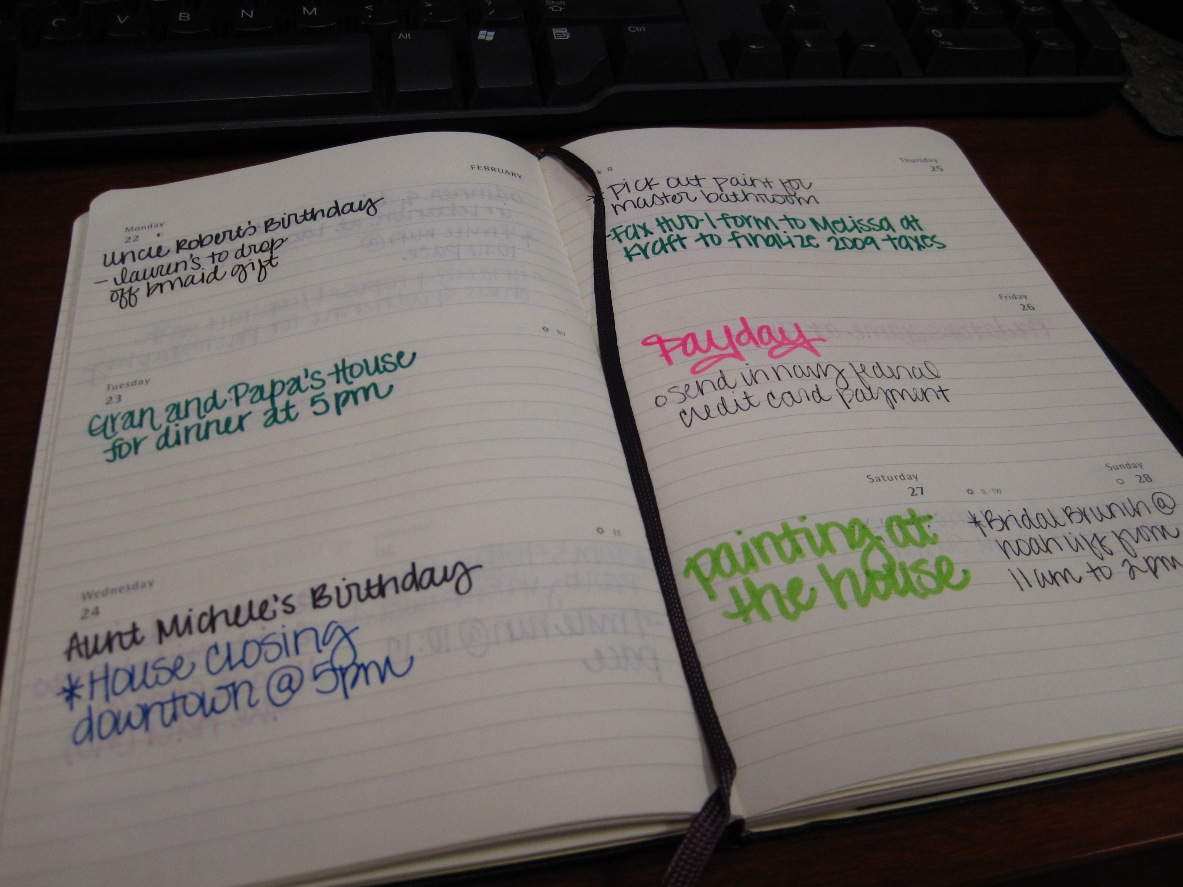 C V B N M
Alt
Ctrl
Shift
FEBRUARY
Monday
22
uncle Robert's Birthday
- lauren's to drop
off bmaid gift
Tuesday
23
Gran and Papa's House
for dinner at 5pm
Wednesday
24
Aunt Michele's Birthday
*House closing
downtown @ 5pm
Thursday
25
*pick out paint for
master bathroom
-Fax HUD-1 form to Melissa at
Kraft to finalize 2009 taxes
Friday
26
Payday
o send in navy federal
credit card payment
Saturday
27
painting at
the house
Sunday
28
*Bridal Brunch @
noah liffs from
11am to 2pm